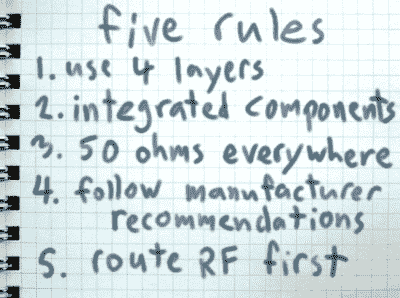 five rules
1. use 4 layers
2. integrated components
3. 50 ohms everywhere
4. follow manufacturer
recommendations
5. route RF first